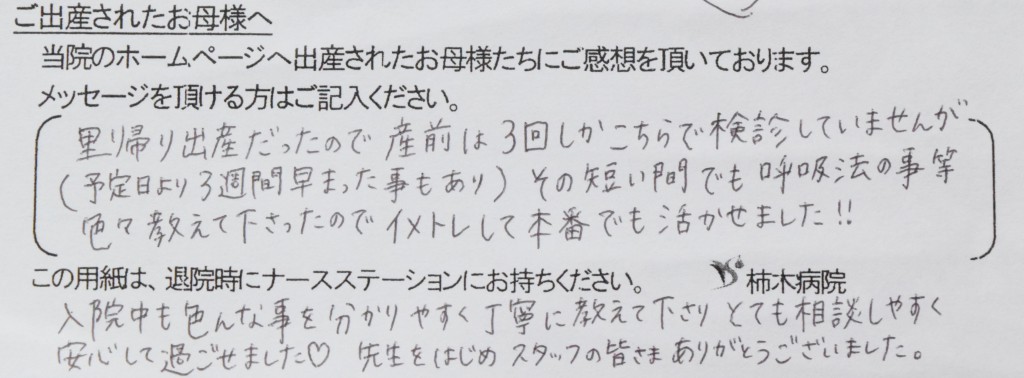 ご出産されたお母様へ
当院のホームページへ出産されたお母様たちにご感想を頂いております。
メッセージを頂ける方はご記入ください。
里り帰り出産だったので産前は3回しかこちらで検診していませんが
(予定日より3週間早まった事もあり)その短い間でも呼吸法の事等
色々教えて下さったのでイメトレして本番でも活かせました!!
この用紙は、退院時にナースステーションにお持ちください。 柿木病院
入院中も色んな事を分かりやすく丁寧に教えて下さりとても相談しやすく
安心して過ごせました♡ 先生をはじめスタッフの皆さまありがとうございました。